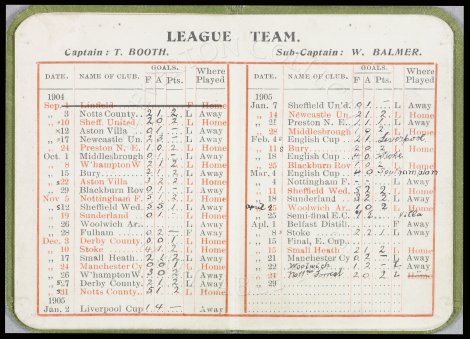 LEAGUE TEAM.
Captain: T. BOOTH. Sub-Captain: W. BALMER.
DATE. NAME OF CLUB. GOALS. F A Pts. Where Played
1904
Sep. 1 Linfield F Home
„ 3 Notts County 2 1 2 L Away
„ 10 Sheff. United 2 0 2 L Home
„ 12 Aston Villa 0 1 — L Away
„ 17 Newcastle Un. 2 3 — L Away
„ 24 Preston N. E. 1 0 2 L Home
Oct. 1 Middlesbro 0 1 — L Away
„ 8 W'hampton W 2 1 2 L Home
„ 15 Bury 2 1 2 L Away
„ 22 Aston Villa 3 2 2 L Home
„ 29 Blackburn Rov 0 1 — L Away
Nov. 5 Nottingham F. 5 1 2 L Home
„ 12 Sheffield Wed. 5 5 1 L Away
„ 19 Sunderland 0 1 L Home
„ 26 Woolwich Ar. L Away
„ 28 Fulham 0 2 — F Away
Dec. 3 Derby County 0 0 1 L Home
„ 10 Stoke 4 1 2 L Home
„ 17 Small Heath 2 1 2 L Away
„ 24 Manchester Cy 0 0 1 L Home
„ 26 W'hampton W 3 0 2 L Away
„ 27 Derby County 2 1 2 L Away
„ 31 Notts County 5 1 2 L Home
1905
Jan. 2 Liverpool Cup 1 4 — Away
DATE. NAME OF CLUB. GOALS. F A Pts. Where Played
1905
Jan. 7 Sheffield Un'd. 0 1 — L Away
„ 14 Newcastle Un. 2 1 2 L Home
„ 21 Preston N. E. 1 1 1 L Away
„ 28 Middlesbrough L Home
Feb. 4 English Cup 2 1 Liverpool
„ 11 Bury 2 0 2 L Home
„ 18 English Cup 4 0 Stoke
„ 25 Blackburn Rov 1 0 2 L Home
Mar. 4 English Cup 4 0 Southampton
„ 4 Nottingham F. L Away
„ 11 Sheffield Wed. 5 2 2 L Home
„ 18 Sunderland 3 2 2 L Away
Woolwich Ar. 1 0 2 L Home
„ 25 Semi-final E.C. Villa
Apl. 1 Belfast Distil. F Away
„ 8 Stoke 2 2 1 L Away
„ 15 Final, E. Cup
„ 15 Small Heath 2 1 2 L Home
„ 21 Manchester Cy 0 2 — L Away
„ 22 Woolwich 1 2 — L Away
Notts Forrest 2 0 2 L Home
„ 29